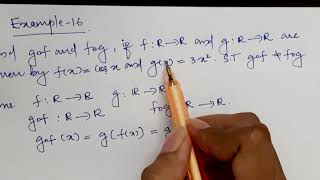 Example-16
nd gof and fog, if f: R→R and g: R→R are
ven by f(x) = cos x and g(x) = 3x². S.T gof ≠ fog
f: R→R g: R→R
gof : R→R fog R→R.
gof (x) = g(f(x)) = g